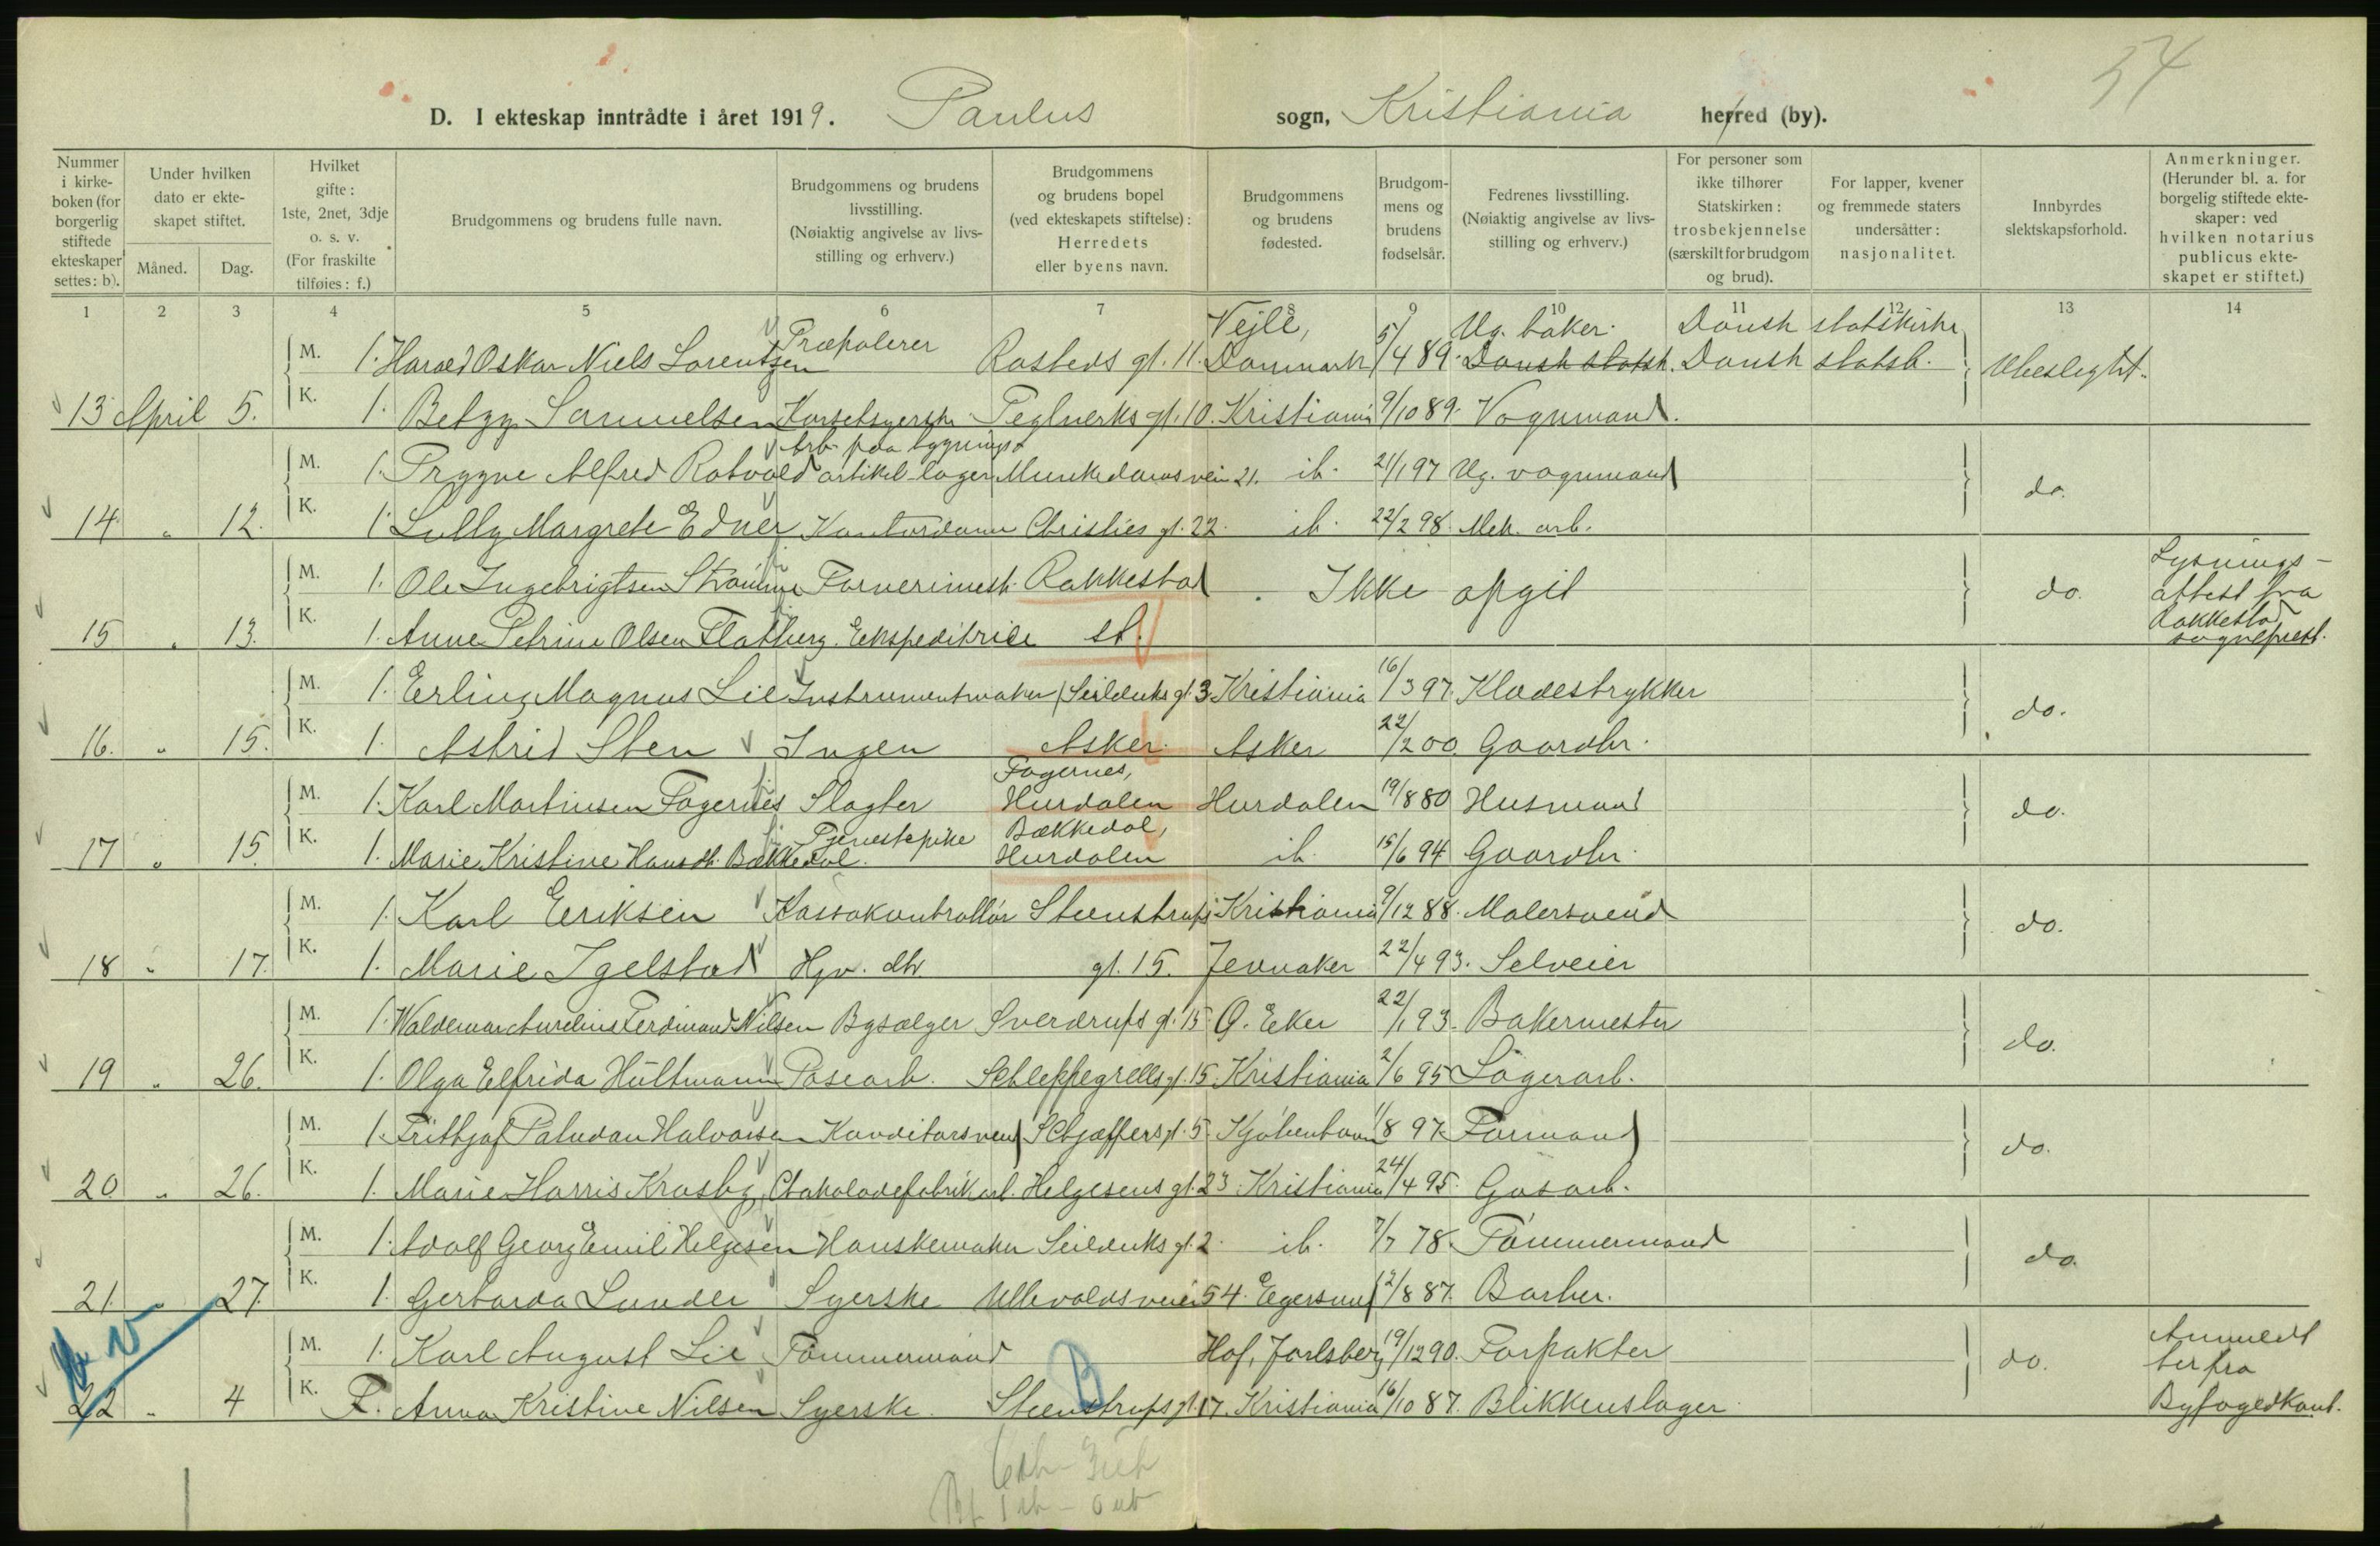 54
D. I ekteskap inntrådte i året 1919. Paulus sogn, Kristiania herred (by).
Nummer i kirke-boken (for borgerlig stiftede ekteskaper settes: b).
Under hvilken dato er ekte-skapet stiftet.
Måned. Dag.
Hvilket gifte: 1ste, 2net, 3dje o. s. v. (For fraskilte tilføies: f.)
Brudgommens og brudens fulle navn.
Brudgommens og brudens livsstilling. (Nøiaktig angivelse av livs-stilling og erhverv.)
Brudgommens og brudens bopel (ved ekteskapets stiftelse): Herredets eller byens navn.
Brudgommens og brudens fødested.
Brudgom-mens og brudens fødselsår.
Fedrenes livsstilling. (Nøiaktig angivelse av livs-stilling og erhverv.)
For personer som ikke tilhører Statskirken: trosbekjennelse (særskilt for brudgom og brud).
For lapper, kvener og fremmede staters undersåtter: nasjonalitet.
Innbyrdes slektskapsforhold.
Anmerkninger. (Herunder bl. a. for borgelig stiftede ekte-skaper: ved hvilken notarius publicus ekte-skapet er stiftet.)
1 2 3 4 5 6 7 8 9 10 11 12 13 14
M. 1. Harald Oskar Niels Lorentzen Præpalerer Rosteds gt. 11. Vejle, Danmark 5/4 89. Ug. baker. Dansk statsk. Dansk statskirke Dansk statsb. Ubeslegtet.
13 April 5. K. 1. Betzy Samuelsen Korsetsyerske Teglverks gt. 10. Kristiania 9/10 89. Vognmand.
M. 1. Trygve Alfred Rotvold Arb. paa bygnings-artikel-lager Munkedamsvein 21. ib. 21/1 97 Ug. vognmand
14 " 12. K. 1. Lully Margrete Edner Kontordame Christies gt. 22. ib. 22/2 98. Mek. arb. do.
M. 1. Ole Ingebrigtsen Strømme Farverimest. Rakkestad . Ikke opgit do. Lysnings-attest fra Rakkestad sogneprest.
15 " 13. K. 1. Anne Petrine Olsen Flatberg. Ekspeditrice st.
M. 1. Erling Magnus Lie Instrumentmaker Seilduks gt. 3. Kristiania 16/3 97. Klædestrykker
16. " 15. K. 1. Astrid Sten Ingen Asker. Asker 22/2 00. Gaardbr. do.
M. 1. Karl Martinsen Fagernes Slagter Fagernes, Hurdalen Hurdalen 19/8 80 Husmand
17 " 15. K. 1. Marie Kristine Hansdt. Bækkedal. Tjenestepike Bækkedal, Hurdalen ib. 15/6 94 Gaardbr. do.
M. 1. Karl Eriksen Kassakontrollør Steenstrups Kristiania 9/12 88. Malersvend
18 " 17. K. 1. Marie Igelstad Hjv. dtr. gt. 15. Jevnaker 22/4 93. Selveier do.
M. 1. Waldemar Aurelius Ferdinand Nilsen Bysælger Sverdrups gt. 15. Ø. Eker 22/1 93. Bakermester
19 " 26. K. 1. Olga Elfrida Hültmann Posearb. Schleppegrells gt. 15. Kristiania 2/6 95 Lagerarb. do.
M. 1. Frithjof Paludan Halvorsen Konditorsvend Schjæffers gt. 5. Kjøbenhavn 11/8 97. Formand
20 " 26. K. 1. Marie Harris Krosby Chokoladefabrikarb. Helgesens gt. 23. Kristiania 24/4 95. Gasarb. do.
M. 1. Adolf Georg Emil Helgesen Hanskemaker Seilduks gt. 2. ib. 7/7 78. Tømmermand
21. " 27. K. 1. Gerharda Lunder Syerske Ullevoldsveien 54. Egersund 12/8 87. Barber. do.
M. 1. Karl August Lie Tømmermand Hof, Jarlsberg 19/12 90. Forpakter do. Anmeldt her fra Byfogedkont.
22 " 4 K. F. Anna Kristine Nilsen Syerske. Steenstrups gt. 17. Kristiania 16/10 87. Blikkenslager.
B